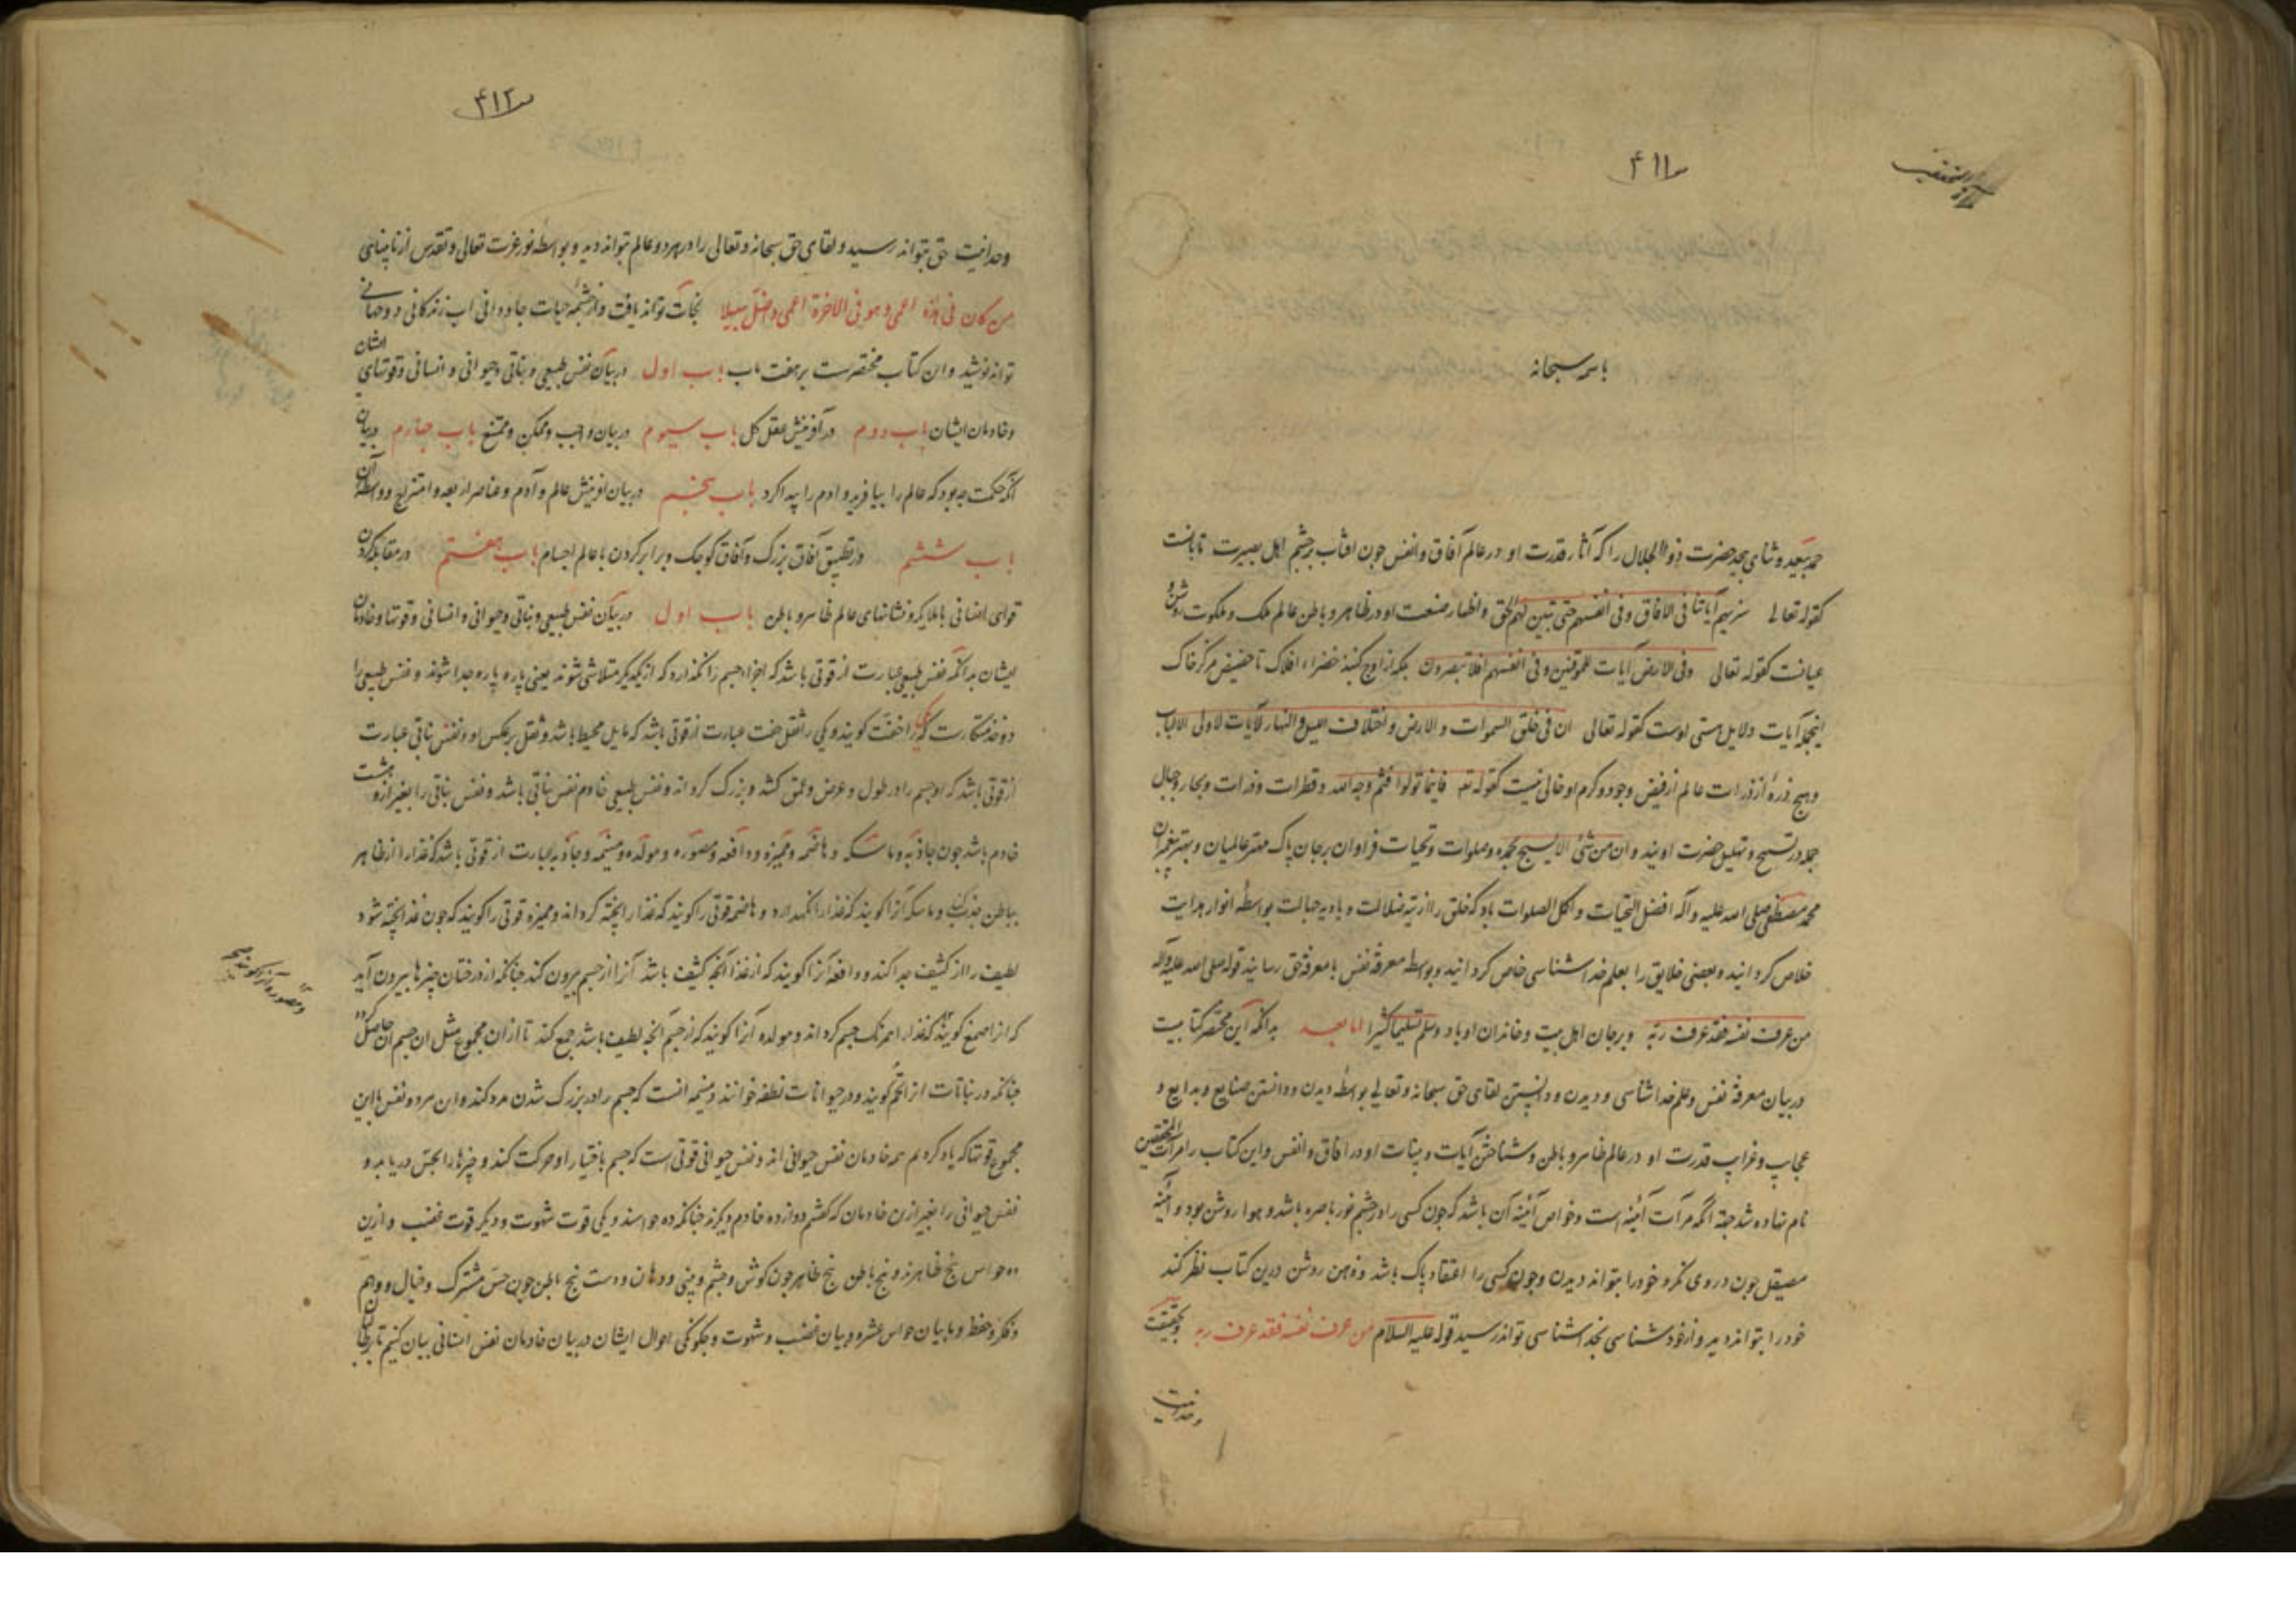 ۴۱۱
باسمه سبحانه
حمد بیعد و ثنای بیحد حضرت ذو الجلال را که آثار قدرت او در عالم آفاق و انفس چون افتاب بر چشم اهل بصیرت تابانست
کقوله تعالی سنریهم آیاتنا فی الافاق و فی انفسهم حتی یتبین لهم الحق و اظهار صنعت او در ظاهر و باطن عالم ملک و ملکوت روشن و
عیانست کقوله تعالی و فی الارض آیات للموقنین و فی انفسهم افلا تبصرون بلکه از اوج کنبد خضراء افلاک تا حضیض مرکز خاک
اینجمله آیات و دلایل هستی اوست کقوله تعالی ان فی خلق السموات و الارض و اختلاف اللیل و النهار لآیات لاولی الالباب
و هیچ ذرهٔ از ذرات عالم از فیض وجود و کرم او خالی نیست کقوله تعه فاینما تولوا فثم وجه الله و قطرات و ذرات و بحار و جبال
جمله در تسبیح و تهلیل حضرت اویند و ان من شئ الا یسبح بحمده و صلوات و تحیات فراوان بر جان پاک مهتر عالمیان و بهتر پیغمبران
محمد مصطفی صلی الله علیه و آله افضل التحیات و اکمل الصلوات باد که خلق را از تیه ضلالت و بادیه جهالت بواسطهٔ انوار هدایت
خلاص کردانید و بعضی خلایق را بعلم خداشناسی خاص کردانید و بواسطه معرفة نفس با معرفة حق رسانید قوله صلی الله علیه و آله
من عرف نفسه فقد عرف ربه و بر جان اهل بیت و خاندان او باد و سلم تسلیما کثیرا اما بعد بدانکه این مختصر کتابیست
در بیان معرفة نفس و علم خداشناسی و دیدن و دانستن لقای حق سبحانه و تعالی بواسطهٔ دیدن و دانستن صنایع و بدایع و
عجایب و غرایب قدرت او در عالم ظاهر و باطن و شناختن آیات و بینات او در افاق و انفس و این کتاب را مرآت المحققین
نام نهاده شد جهة آنکه مرآت آئینه است و خواص آئینه آن باشد که چون کسی را در چشم نور باصره باشد و هوا روشن بود و آئینه
مصیقل چون در وی نکرد خود را بتواند دیدن و چون کسی را اعتقاد پاک باشد و ذهن روشن درین کتاب نظر کند
خود را بتواند دید و از خودشناسی بخداشناسی تواند رسید قوله علیه السلام من عرف نفسه فقد عرف ربه و بحقیقت
وحدانیت
۴۱۲
وحدانیت حق بتواند رسید و لقای حق سبحانه و تعالی را در هر دو عالم بتواند دید و بواسطه نور عزت تعالی و تقدس از نابینایی
من کان فی هذه اعمی و هو فی الاخرة اعمی و اضل سبیلا نجات تواند یافت و از چشمه حیات جاودانی اب زندکانی روحانی
تواند نوشید و ان کتاب مختصرست بر هفت باب باب اول در بیان نفس طبیعی و نباتی و حیوانی و انسانی و قوتهای ایشان
و خادمان ایشان باب دوم در آفرینش عقل کل باب سیوم در بیان واجب و ممکن و ممتنع باب چهارم در بیان
آنکه حکمت چه بود که عالم را بیافرید و ادم را پیدا کرد باب پنجم در بیان افرینش عالم و آدم و عناصر اربعه و امتزاج و واسطه آن
باب ششم در تطبیق آفاق بزرک و آفاق کوچک و برابر کردن با عالم اجسام باب هفتم در مقابله کردن
قوای انسانی با ملایکه و نشانهای عالم ظاهر و باطن باب اول در بیان نفس طبیعی و نباتی و حیوانی و انسانی و قوتها و خادمان
ایشان بدانکه نفس طبیعی عبارت از قوتی باشد که اجزاء جسم را نکذارد که از یکدیکر متلاشی شوند یعنی پاره پاره و جدا شوند و نفس طبیعی را
دو خدمتکارست یکی را خفت کویند و یکی را ثقل خفت عبارت از قوتی باشد که مایل محیط باشد و ثقل برعکس او و نفس نباتی عبارت
از قوتی باشد که او جسم را در طول و عرض و عمق کشد و بزرک کرداند و نفس طبیعی خادم نفس نباتی باشد و نفس نباتی را بغیر ازو هشت
خادم باشد چون جاذبه و ماسکه و هاضمه و ممیزه و دافعه و مصوره و مولده و منمیه و جاذبه عبارت از قوتی باشد که غذا را از ظاهر
بباطن جذب کند و ماسکه آنرا کویند که غذا را نکهدارد و هاضمه قوتی را کویند که غذا را پخته کرداند و ممیزه قوتی را کویند که چون غذا پخته شود
لطیف را از کثیف جدا کند و دافعه آنرا کویند که از غذا آنچه کثیف باشد آنرا از جسم بیرون کند چنانکه از درختان چیزها بیرون آید
که انرا صمغ کویند که غذا را همرنک جسم کرداند و مولده آنرا کویند که از جسم آنچه لطیف باشد جمع کند تا از ان مجموع مثل ان جسم ان حاصل
چنانکه در نباتات انرا تخم کویند و در حیوانات نطفه خوانند و منمیه انست که جسم را در بزرک شدن مدد کند و ان هر دو نفس با این
مجموع قوتها که یاد کردیم همه خادمان نفس حیوانی اند و نفس حیوانی قوتی است که جسم باختیار او حرکت کند و چیزها را بحس دریابد و
نفس حیوانی را بغیر ازن خادمان که کفتیم دوازده خادم دیکرند چنانکه ده حواسند و یکی قوت شهوت و دیکر قوت غضب و ازین
ده حواس پنج ظاهرند و پنج باطن پنج ظاهر چون کوش و چشم و بینی و دهان و دست پنج باطن چون حس مشترک و خیال و وهم
و فکر و حفظ و ما بیان حواس عشره و بیان غضب و شهوت و چکونکی احوال ایشان در بیان خادمان نفس انسانی بیان کنیم تا
و مصوره آنرا کویند